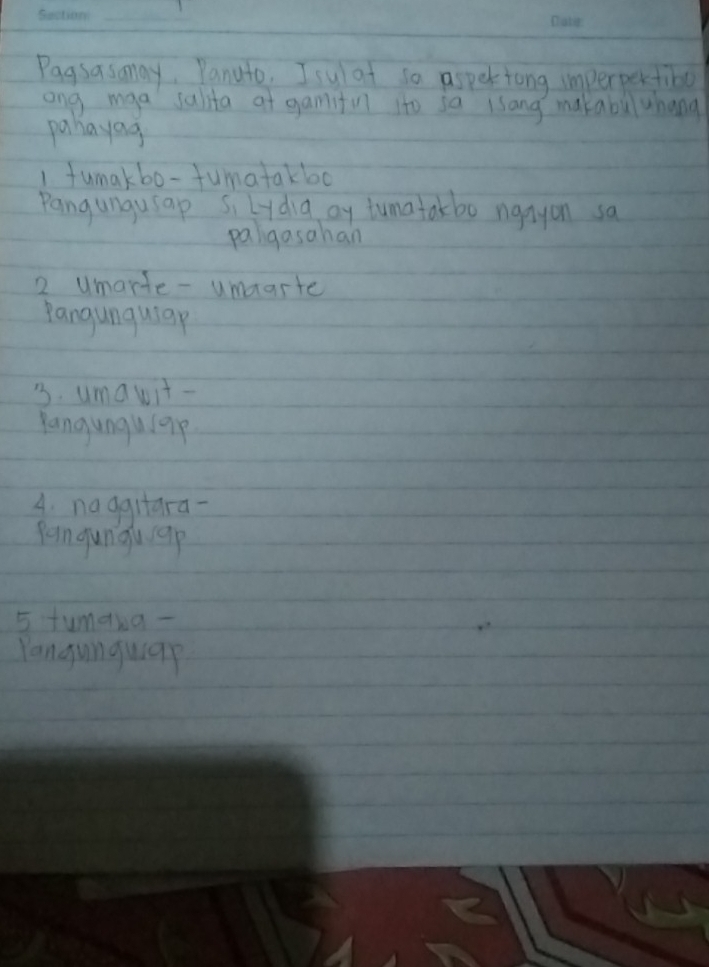 Section
Date
Pagsasanay. Panuto. Isulat sa aspektong imperpektibo
ang mga salita at gamitin ito sa isang makabuluhang
pahayag
1 tumakbo - tumatakbo
Pangungusap Si Lydia ay tumatakbo ngayon sa
paligasahan
2 umarte - umaarte
Pangungusap
3. umawit -
Pangungusap
4. naggitara -
Pangungusap
5 tumawa -
Pangungusap